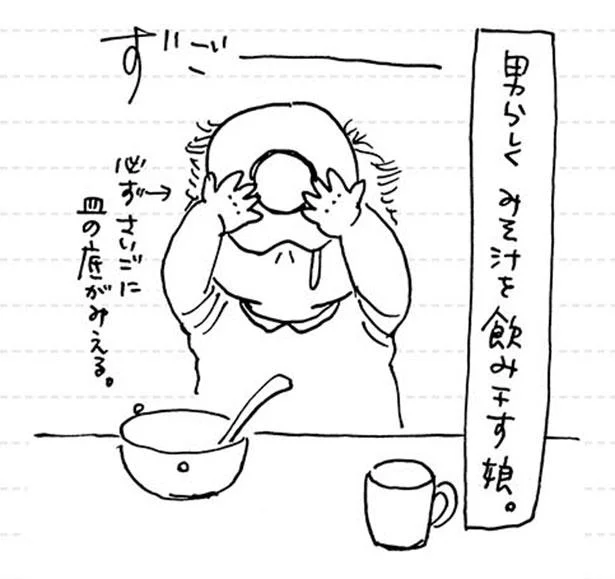 男らしく みそ汁を飲み干す娘。
ずごー
必ずさいごに
皿の底がみえる。